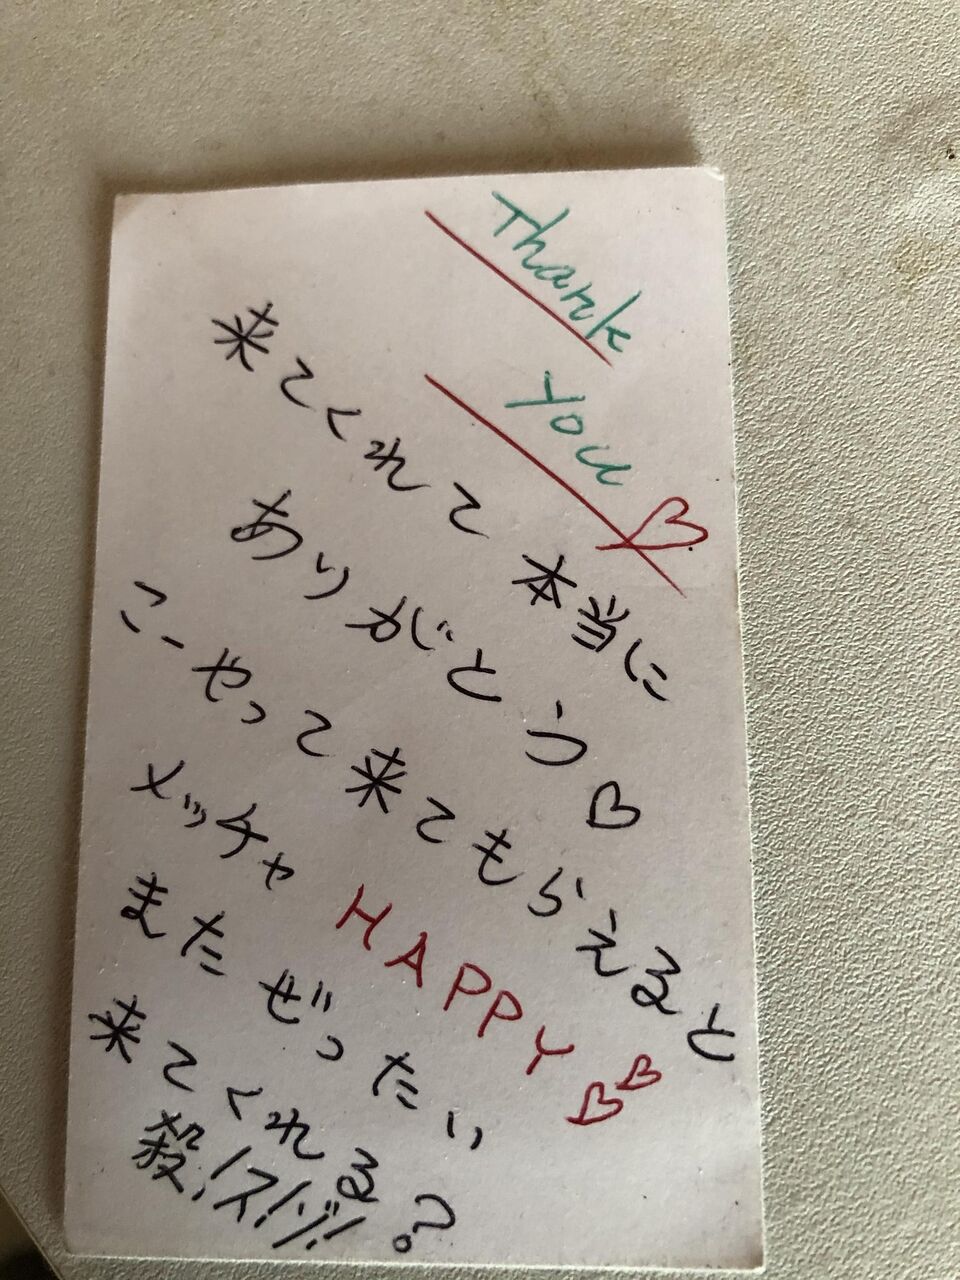 Thank
You♡
来てくれて本当に
ありがとう♡
こーやって来てもらえると
メッチャ HAPPY♡♡
またぜったい
来てくれる?
殺!ス!ゾ!